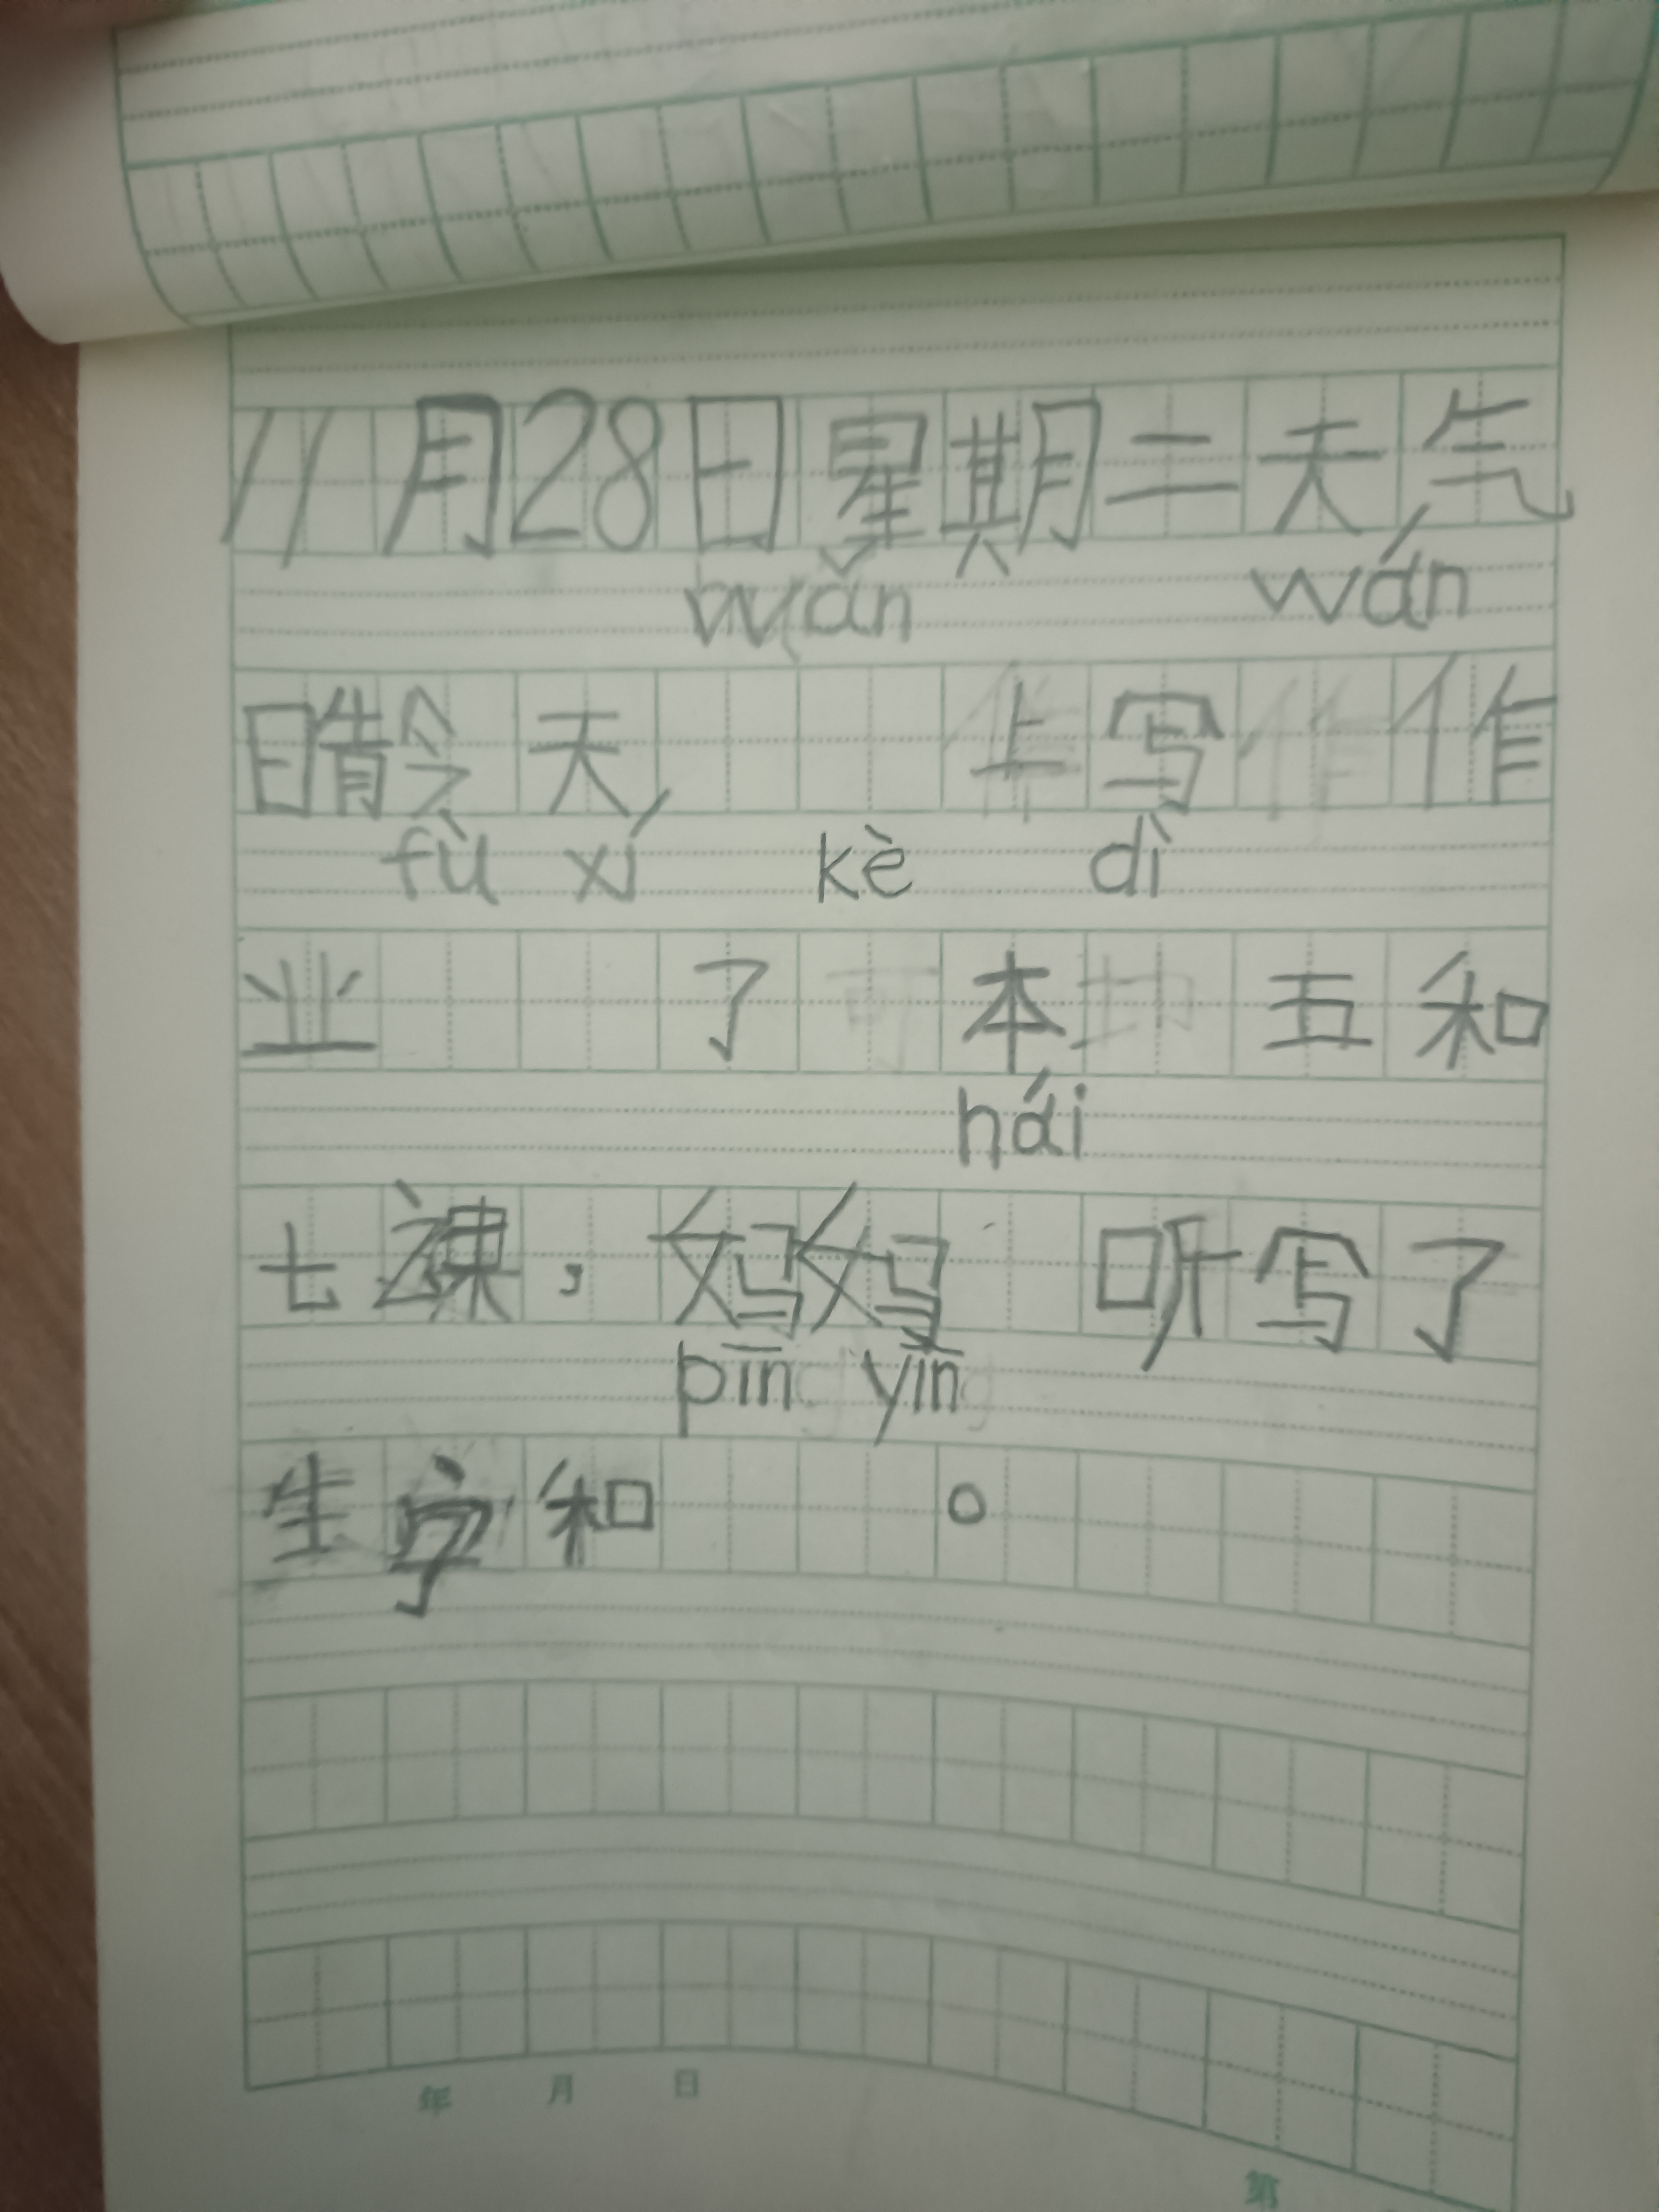 11月28日星期二天气
wǎn wán
晴今天 上写作
fù xí kè dì
业 了 本 五和
hái
七课，妈妈 听写了
pīn yīn
生字和 。
年 月 日
第